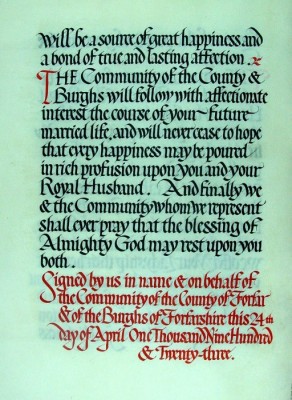 will be a source of great happiness and
a bond of true and lasting affection.
THE Community of the County &
Burghs will follow with affectionate
interest the course of your future
married life, and will never cease to hope
that every happiness may be poured
in rich profusion upon you and your
Royal Husband. And finally we
& the Community whom we represent
shall ever pray that the blessing of
Almighty God may rest upon you
both.
Signed by us in name & on behalf of
the Community of the County of Forfar
& of the Burghs of Forfarshire this 24th
day of April One Thousand Nine Hundred
& Twenty-three.